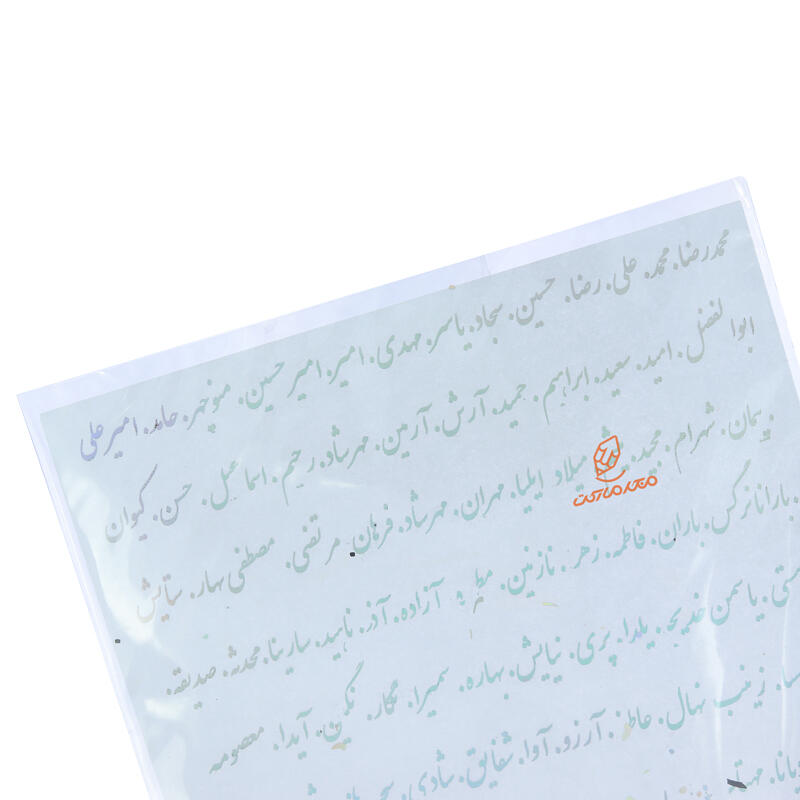 محمدرضا. محمد. علی. رضا. حسین. سجاد. یاسر. مهدی. امیر. امیرحسین. منوچهر. حامد. امیرعلی
ابوالفضل. امید. سعید. ابراهیم. حمید. آرش. آرمین. مهرشاد. رحیم. اسماعیل. حسن. کیوان
پیمان. شهرام. مجید. میلاد ایلیا. مهران. مهرشاد. فرمان. مرتضی. مصطفی بهار. ستایش
باران نرگس. باران. فاطمه. زهر. نازنین. آزاده. آذر. ناهید. سارینا. محدثه. صدیقه.
یاسمن خدیجه. یلدا. پری. نیایش. بهاره. سمیرا. نگار. نگین. آیدا. معصومه
زینب نهال. آرزو. آوا. شقایق. شادی.